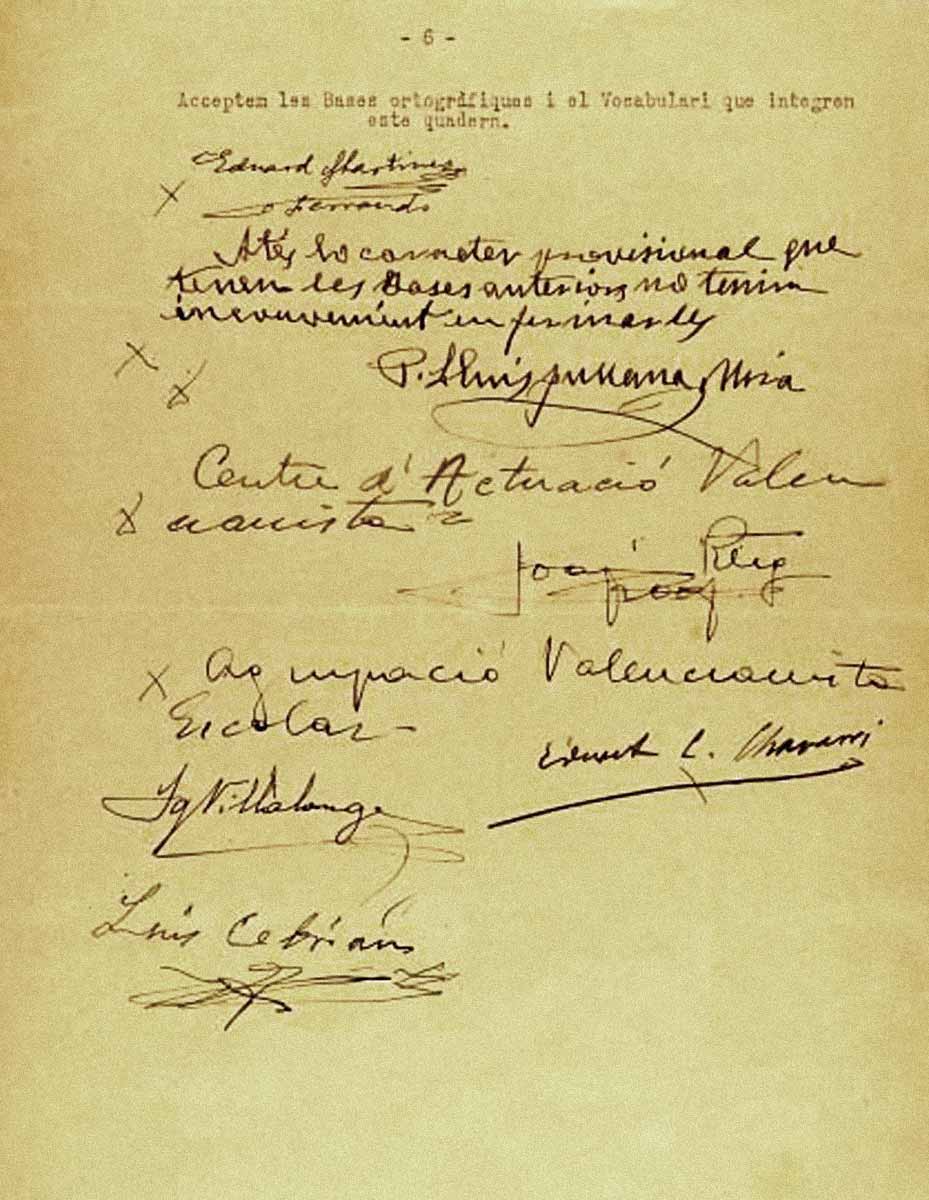 - 6 -
Acceptem les Bases ortogràfiques i el Vocabulari que integren
este quadern.
Eduard Martínez
Ferrando
Atés lo caracter provisional que
tenen les Bases anteriors no tenim
inconvenient en firmarles
P. Lluis Fullana Mira
Centre d'Actuació Valen
cianista
Joaquim Reig
Agrupació Valencianista
Escolar
Eduart L. Chavarri
Ig Villalonga
Lluis Cebrián